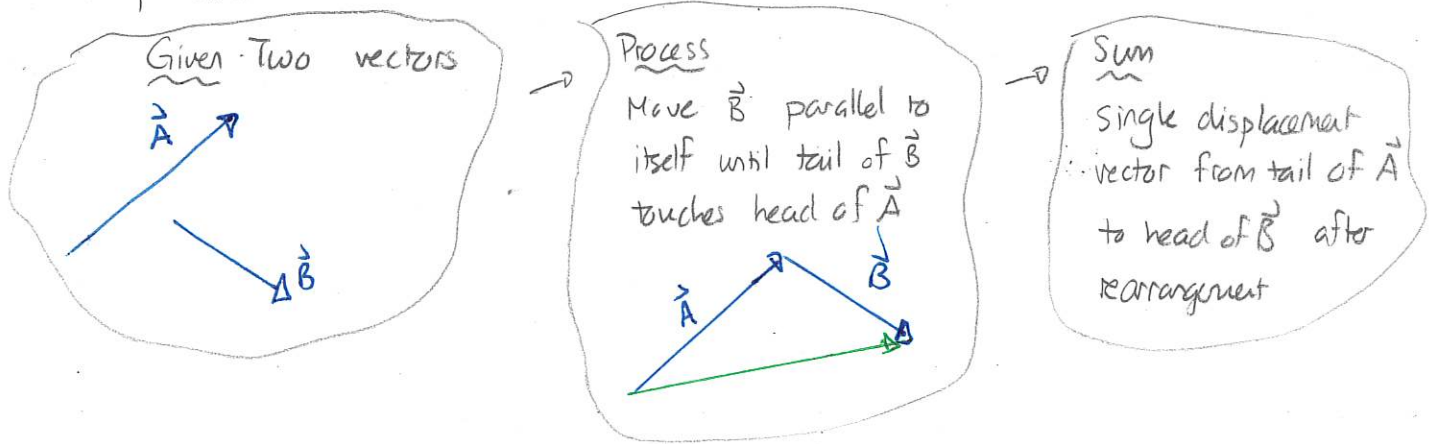 Given Two vectors
A⃗
B⃗
Process
Move B⃗ parallel to
itself until tail of B⃗
touches head of A⃗
A⃗
B⃗
Sum
Single displacement
vector from tail of A⃗
to head of B⃗ after
rearrangement